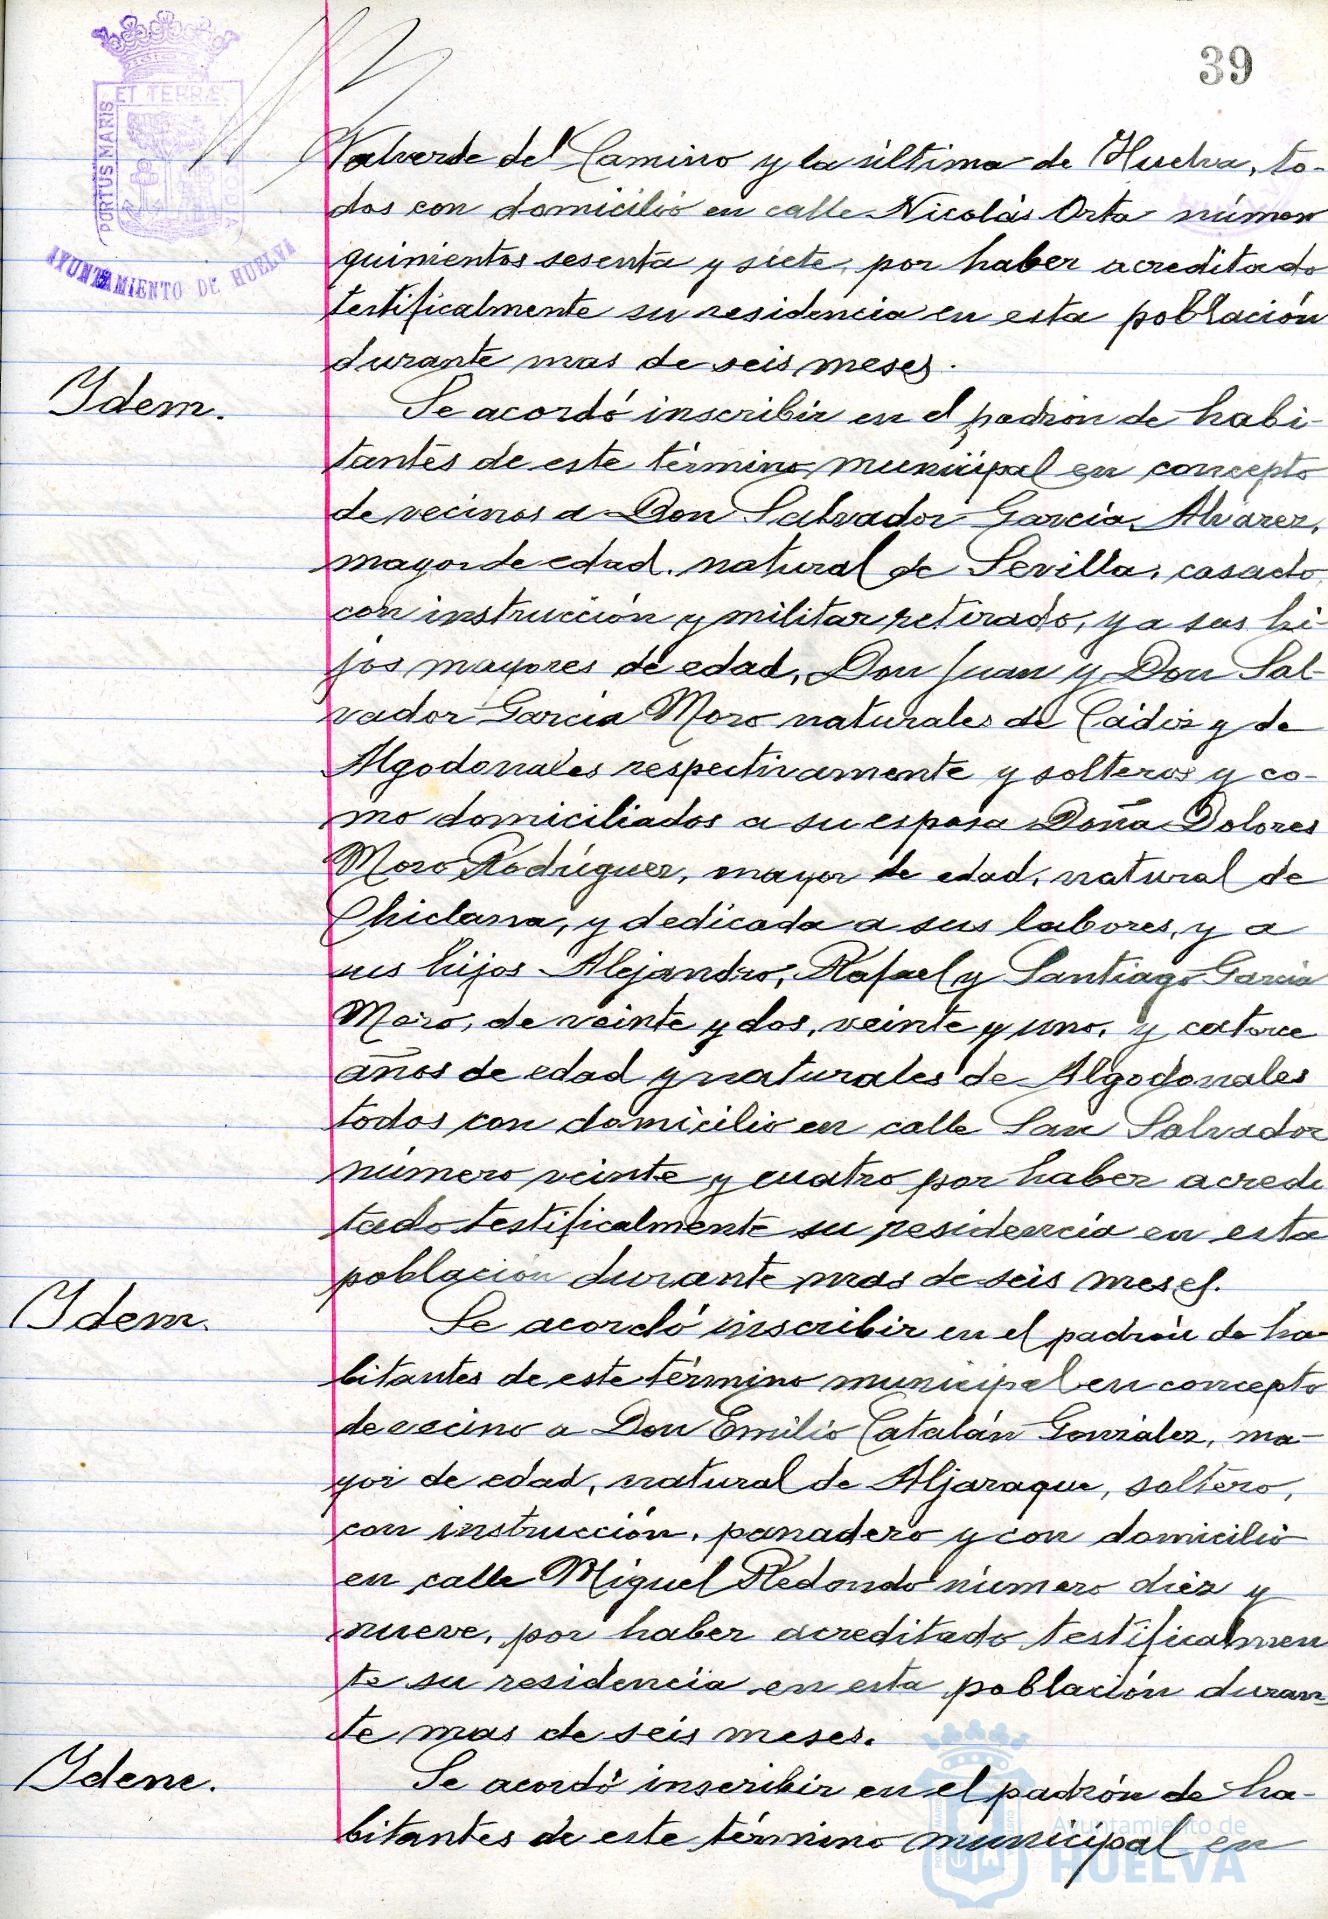 39
PORTUS MARIS
ET TERRÆ
CUSTODIA
AYUNTAMIENTO DE HUELVA
Valverde del Camino y la última de Huelva, to-
dos con domicilio en calle Nicolás Orta númer
quinientos sesenta y siete, por haber acreditado
testificalmente su residencia en esta población
durante mas de seis meses.
Ydem.
Se acordó inscribir en el padrón de habi-
tantes de este término municipal en concepto
de vecinos a Don Salvador García Alvarez,
mayor de edad, natural de Sevilla, casado,
con instrucción y militar retirado, y a sus hi-
jos mayores de edad, Don Juan y Don Sal-
vador García Moro naturales de Cádiz y de
Algodonales respectivamente y solteros y co-
mo domiciliados a su esposa Doña Dolores
Moro Rodríguez, mayor de edad, natural de
Chiclana, y dedicada a sus labores, y a
sus hijos Alejandro, Rafael y Santiago García
Moro, de veinte y dos, veinte y uno, y catorce
años de edad y naturales de Algodonales
todos con domicilio en calle San Salvador
número veinte y cuatro por haber acredi
tado testificalmente su residencia en esta
población durante mas de seis meses.
Ydem.
Se acordó inscribir en el padrón de ha-
bitantes de este término municipal en concepto
de vecino a Don Emilio Catalán González, ma-
yor de edad, natural de Aljaraque, soltero,
con instrucción, panadero y con domicilio
en calle Miguel Redondo número diez y
nueve, por haber acreditado testificalmen
te su residencia en esta población duran
te mas de seis meses.
Ydem.
Se acordó inscribir en el padrón de ha-
bitantes de este término municipal en
Ayuntamiento de
HUELVA